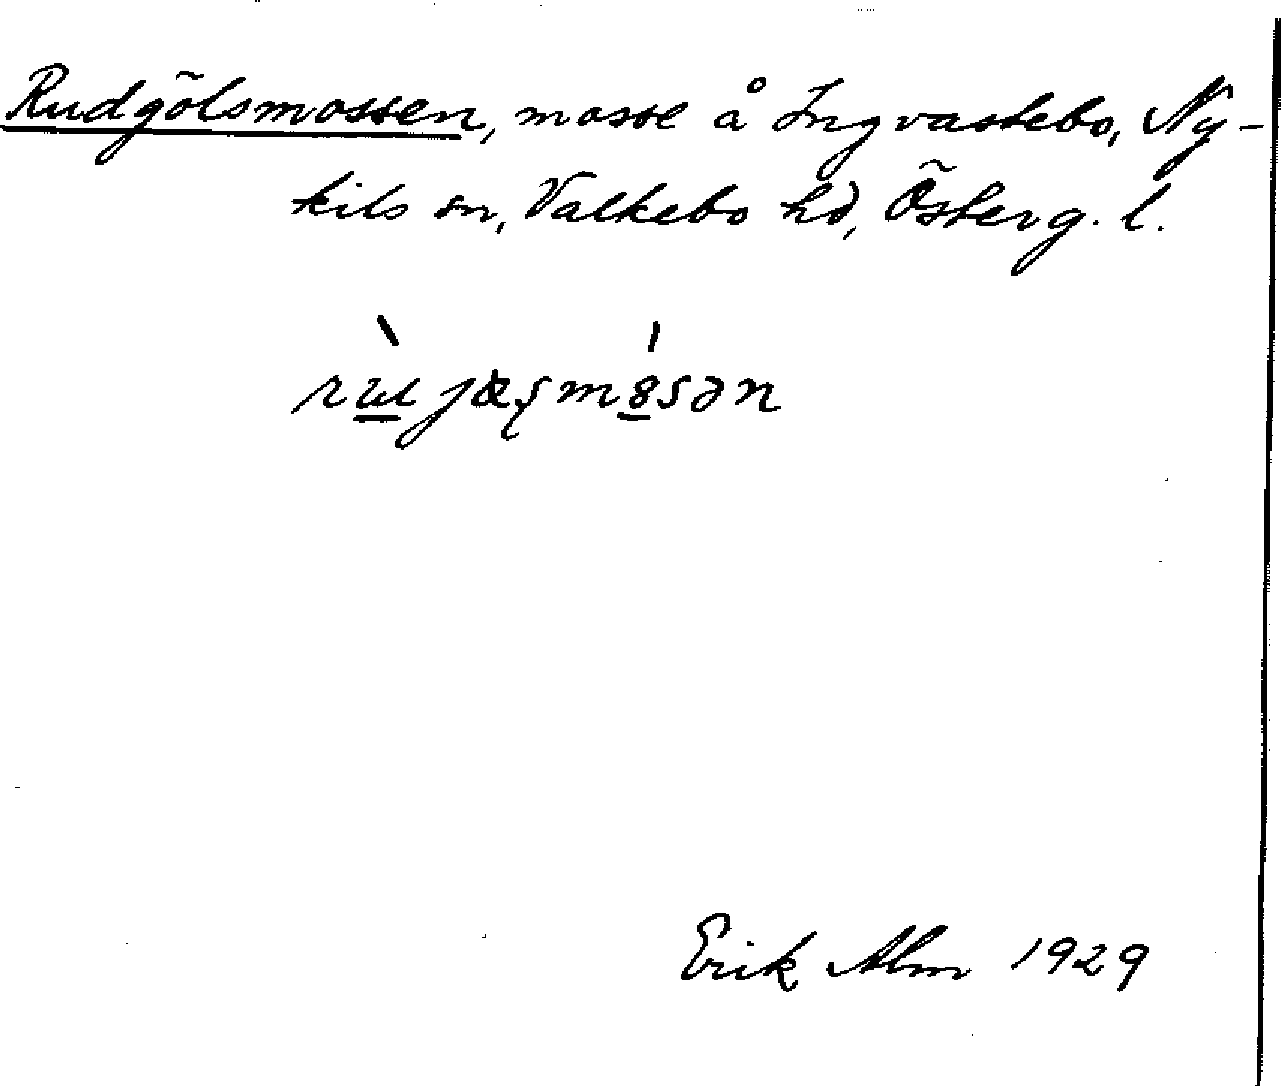 Rudgölsmossen, mosse å Ingvastebo, Ny-
kils sn, Valkebo hd, Österg. l.
Erik Alm 1929